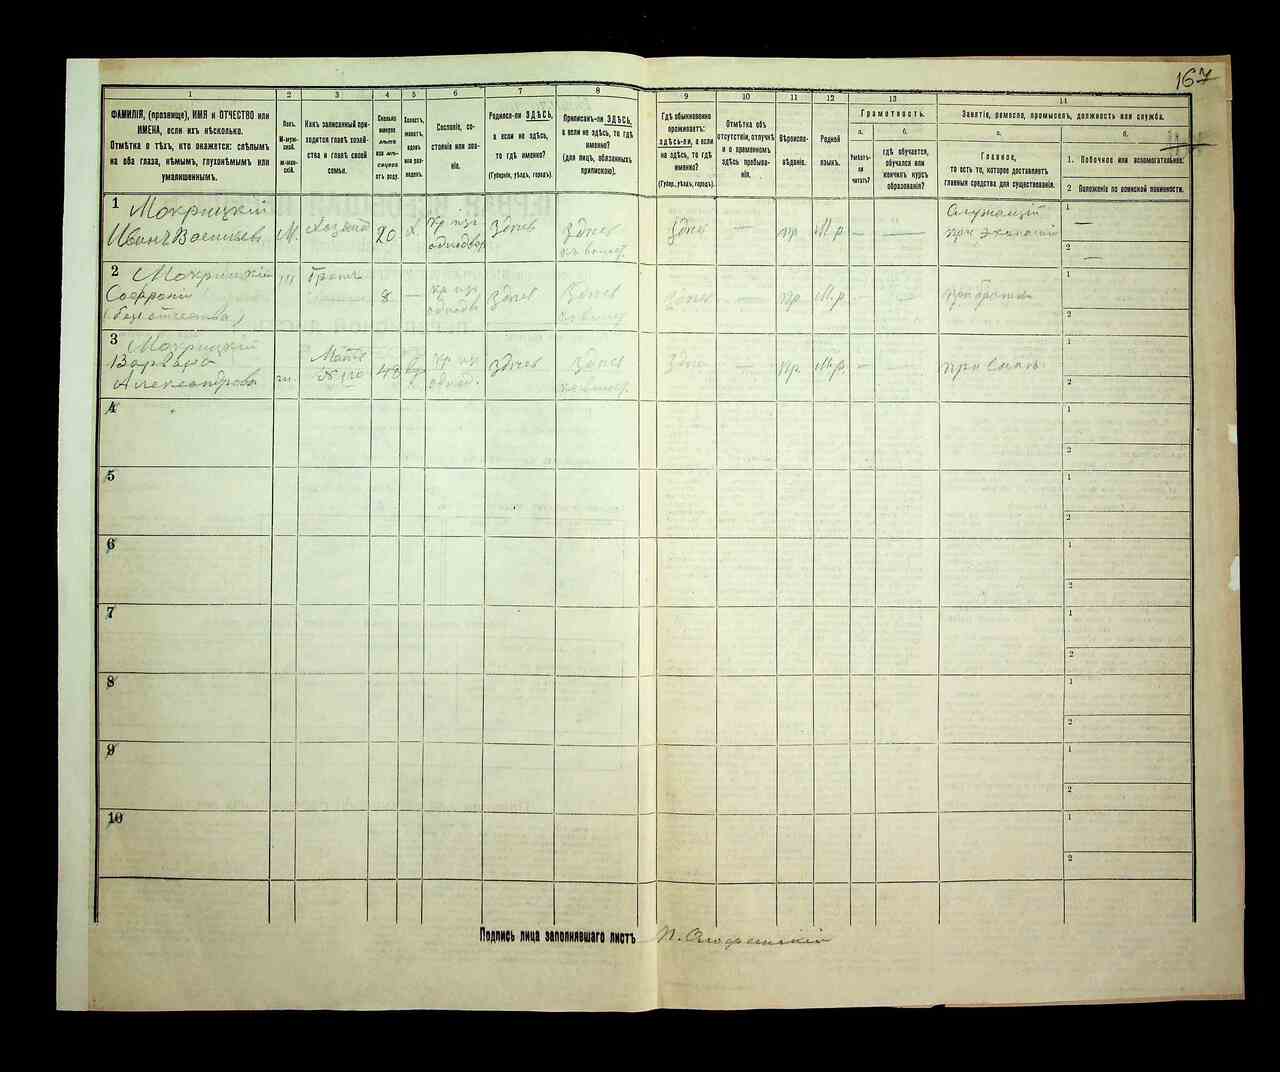 167
1
2
3
4
5
6
7
8
9
10
11
12
13
14
ФАМИЛІЯ, (прозвище), ИМЯ и ОТЧЕСТВО или
ИМЕНА, если ихъ нѣсколько.
Отмѣтка о тѣхъ, кто окажется: слѣпымъ
на оба глаза, нѣмымъ, глухонѣмымъ или
умалишеннымъ.
Полъ.
М-муж-
ской.
ж-жен-
скій.
Какъ записанный при-
ходится главѣ хозяй-
ства и главѣ своей
семьи.
Сколько
минуло
лѣтъ
или мѣ-
сяцевъ
отъ роду.
Холостъ,
женатъ,
вдовъ
или раз-
веденъ.
Сословіе, со-
стояніе или зва-
ніе.
Родился-ли ЗДѢСЬ,
а если не здѣсь,
то гдѣ именно?
(Губернія, уѣздъ, городъ).
Приписанъ-ли ЗДѢСЬ,
а если не здѣсь, то гдѣ
именно?
(для лицъ, обязанныхъ
припискою).
Гдѣ обыкновенно
проживаетъ:
здѣсь-ли, а если
не здѣсь, то гдѣ
именно?
(Губер., уѣздъ, городъ).
Отмѣтка объ
отсутствіи, отлучкѣ
и о временномъ
здѣсь пребыва-
ніи.
Вѣроиспо-
вѣданіе.
Родной
языкъ.
Грамотность.
а.
Умѣетъ-
ли
читать?
б.
гдѣ обучается,
обучался или
кончилъ курсъ
образованія?
Занятіе, ремесло, промыселъ, должность или служба.
а.
Главное,
то есть то, которое доставляетъ
главныя средства для существованія.
б.
1. Побочное или вспомогательное.
2 Положеніе по воинской повинности.
1 Мокрицкій
Иванъ Васильевъ
М.
Хозяинъ
20
Х
кр изъ
однодвор
Здѣсь
Здѣсь
Здѣсь
—
пр
М.р
—
—
Служащій
при экономіи
1
—
2
—
2 Мокрицкій
Софроній
(безъ отчества)
Братъ
8
—
кр изъ
Здѣсь
Здѣсь
Здѣсь
—
пр
М.р
—
—
при братѣ
1
2
3 Мокрицкій
Варвара
Александрова
Мать
№ 1го
48
кр из
однод.
Здѣсь
Здѣсь
—
пр.
М.р
—
—
при сынѣ
1
2
4
1
2
5
1
2
6
1
2
7
1
2
8
1
2
9
1
2
10
1
2
Подпись лица заполнявшаго листъ